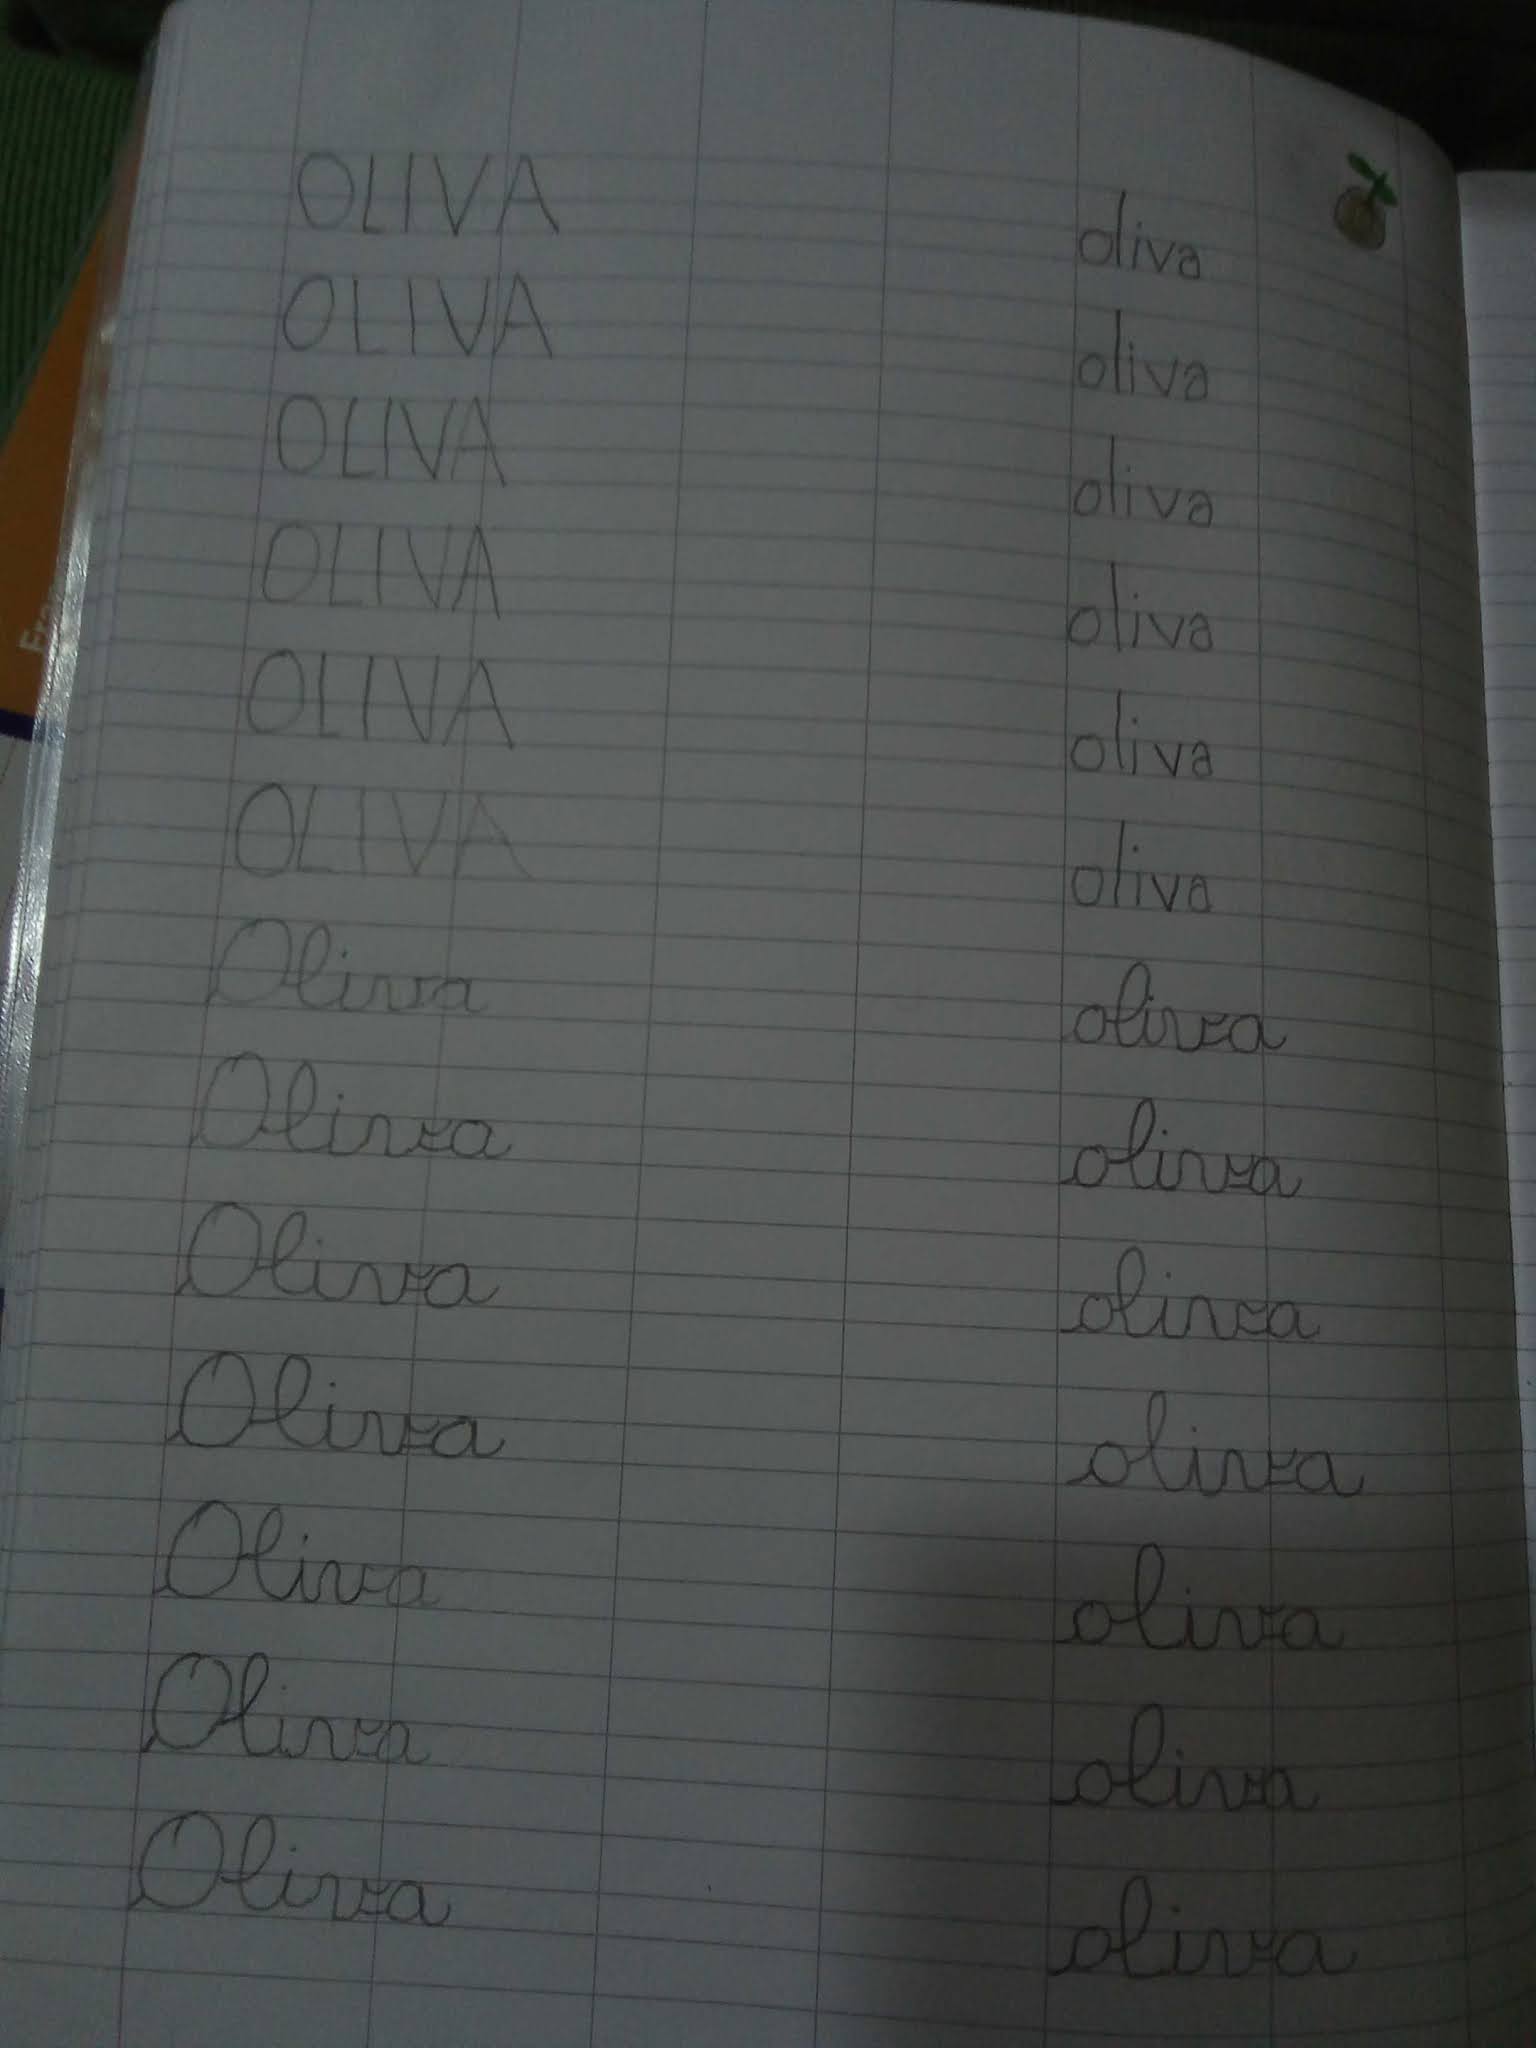 OLIVA oliva
OLIVA oliva
OLIVA oliva
OLIVA oliva
OLIVA oliva
OLIVA oliva
Oliva oliva
Oliva oliva
Oliva oliva
Oliva oliva
Oliva oliva
Oliva oliva
Oliva oliva